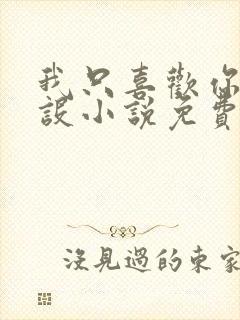 我只喜歡你
設小說免費
沒見過的東家